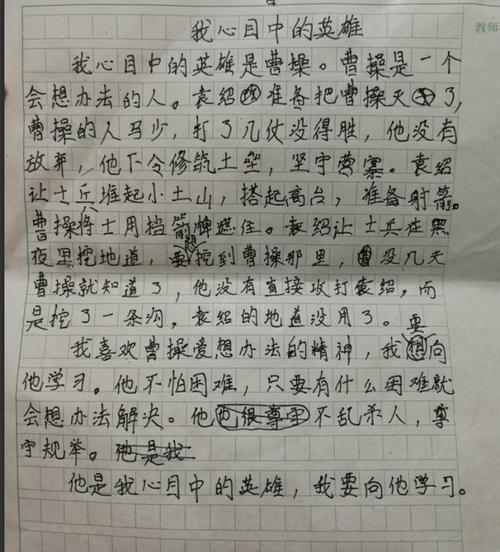 我心目中的英雄
教师
我心目中的英雄是曹操。曹操是一个
会想办法的人。袁绍准备把曹操灭了,
曹操的人马少,打了几仗没得胜,他没有
放弃,他下令修筑土垒,坚守营寨。袁绍
让士兵堆起小土山,搭起高台,准备射箭。
曹操将士用挡箭牌遮住。袁绍让士兵在黑
夜里挖地道,想挖到曹操那里,没几天
曹操就知道了,他没有直接攻打袁绍,而
是挖了一条沟,袁绍的地道没用了。
我喜欢曹操爱想办法的精神,我要向
他学习。他不怕困难,只要有什么困难就
会想办法解决。他不乱杀人,尊
守规举。他是我
他是我心目中的英雄,我要向他学习。